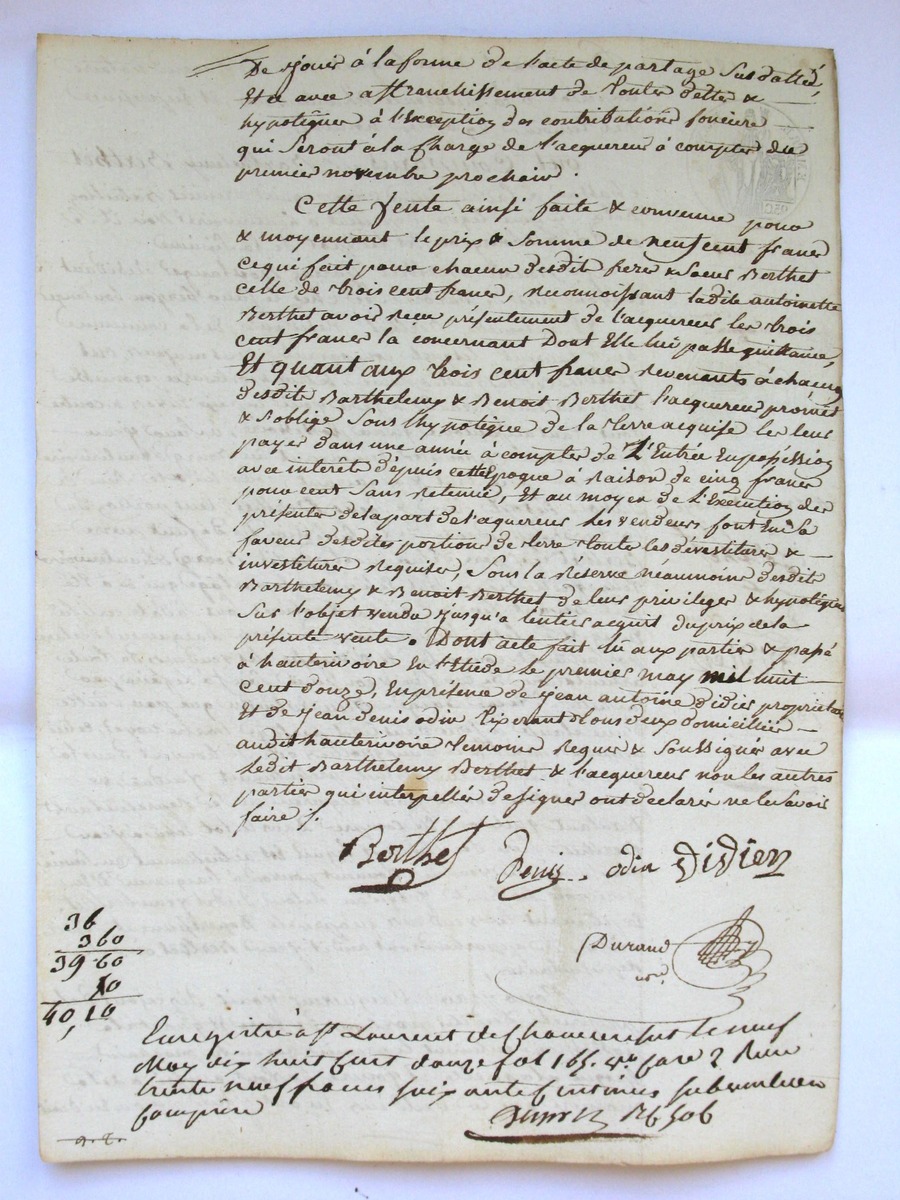 De jouir à la forme de l'acte de partage Susdatté,
Et ce avec affranchissement de toutes dettes &
hypotêques à l'Exception des contributions foncieres
qui Seront à la Charge de l'acquereur à compter du
premier novembre prochain.
Cette Vente ainsi faite & convenue pour
& moyennant le prix & Somme de neuf cent francs
ce qui fait pour chacun desdits freres & Soeur Berthet
celle de trois cent francs, reconnoissant ladite antoinette
Berthet avoir reçu présentement de l'acquereur les trois
cent francs la concernant Dont Elle lui passe quittance,
Et quant aux trois cent francs revenants à chacun
desdits Barthelemy & Benoit Berthet l'acquereur promet
& s'oblige Sous l'hypotêque de la terre acquise les leur
payer dans une année à compter de L'Entrée En possession
avec interêt depuis cette Epoque à raison de cinq francs
pour cent Sans retenue, Et au moyen de L'Exécution des
présentes de la part de l'acquereur les vendeurs font En sa
faveur desdites portions de terre toutes les dévestitures &
investitures requises, Sous la réserve néanmoins desdits
Barthelemy & Benoit Berthet de leurs privileges & hypotêques
Sur l'objet vendu jusqu'à l'entier acquit du prix de la
présente vente. Dont acte fait lu aux parties & passé
à hauterivoire En l'Etude le premier may mil huit
cent douze, En présence de jean antoine didier propriétaire
Et de jean denis odin tisserant tous deux domiciliés
audit hauterivoire temoins requis & Soussignés avec
ledit Barthelemy Berthet & l'acquereur non les autres
parties qui interpellées de signer ont déclaré ne le Savoir
faire /.
Berthet Denis odin Didier
Durand
nore.
36
360
39-60
10
40,10
Enregistré à St Laurent de Chamousset le neuf
May dix huit Cent douze fol 165. Vo. Case 2 Reçu
trente neuf francs soixante Centimes subvention
Comprise